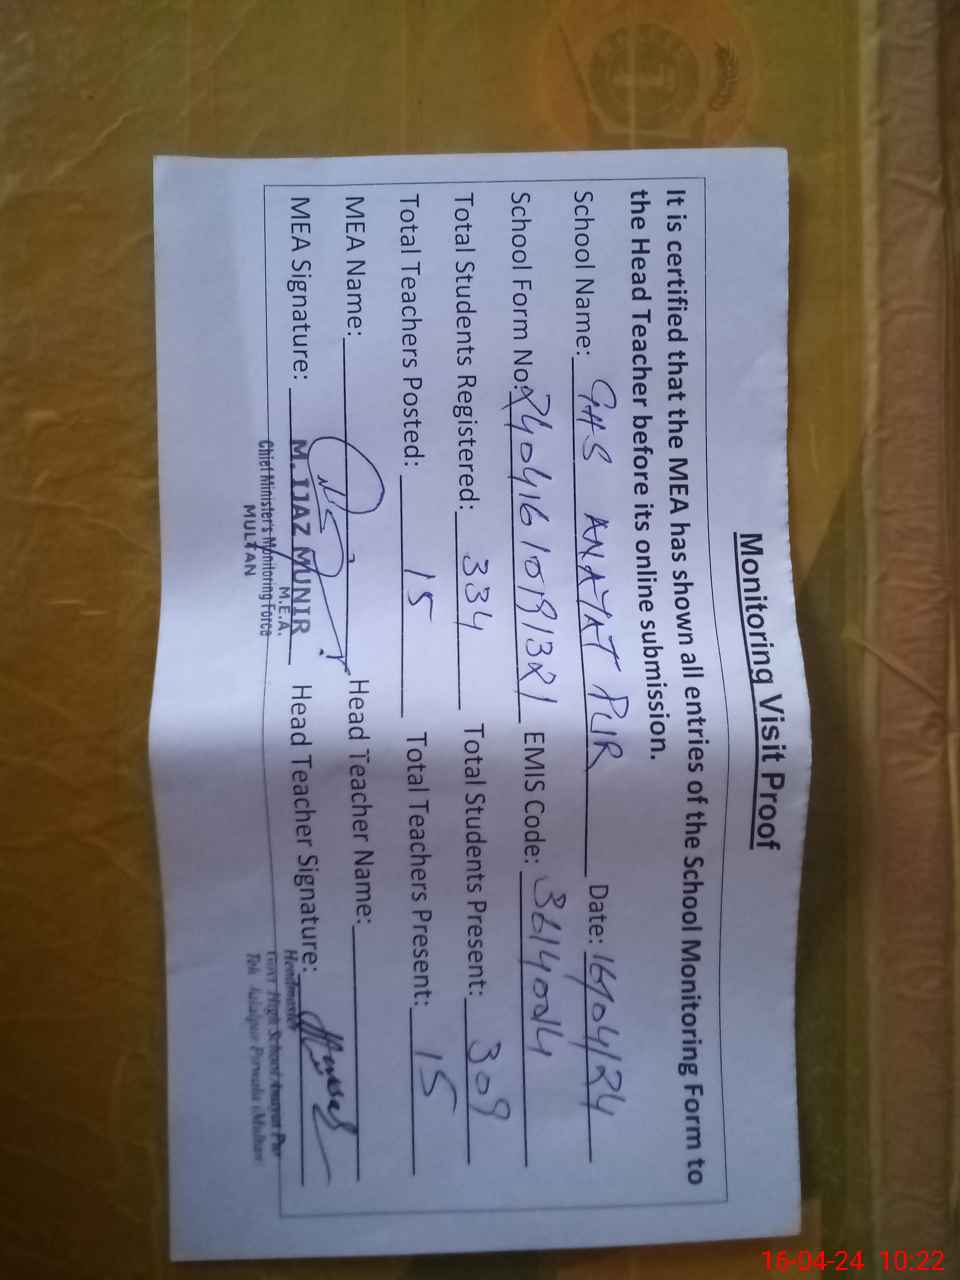 Monitoring Visit Proof
It is certified that the MEA has shown all entries of the School Monitoring Form to
the Head Teacher before its online submission.
School Name: GHS ANAYAT PUR Date: 16/04/24
School Form No: 24041610191321 EMIS Code:
Total Students Registered: 334 Total Students Present: 309
Total Teachers Posted: 15 Total Teachers Present: 15
MEA Name: Head Teacher Name:
MEA Signature: Head Teacher Signature:
M. IJAZ MUNIR
M.E.A.
Chief Minister's Monitoring Force
MULTAN
Headmaster
Govt High School Anayat Pur
Teh. Jalalpur Pirwala (Multan)
16-04-24 10:22